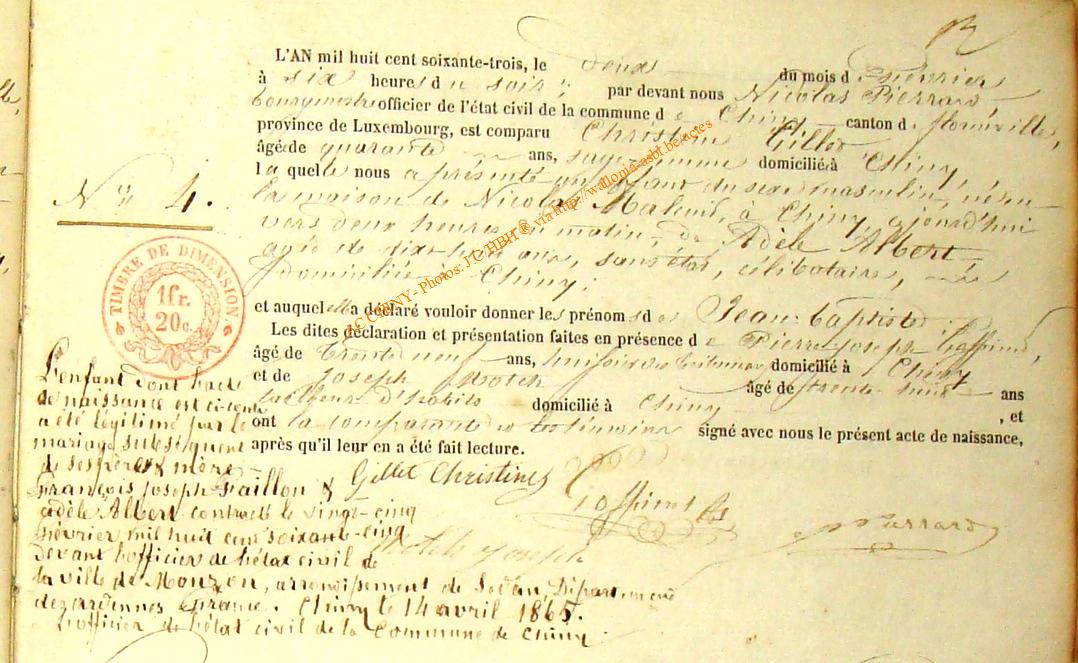 L'AN mil huit cent soixante-trois, le deux du mois d e février
à six heures d u soir, par devant nous Nicolas Pierrard
bourgmestre officier de l'état civil de la commune d e Chiny canton d e florenville,
province de Luxembourg, est comparu Christine Gillet
âgée de quarante ans, sage femme domiciliée à Chiny,
la quelle nous a présenté un enfant du sexe masculin, né en
la maison de Nicolas à Chiny, aujourd'hui
vers deux heures du matin, de Adèle Albert
agée de dix huit ans, sans état, célibataire, née
domiciliée Chiny;
et auquel elle a déclaré vouloir donner les prénoms de Jean-Baptiste
Les dites déclaration et présentation faites en présence d e Pierre Joseph
âgé de trente neuf ans, domicilié à Chiny
et de Joseph âgé de trente huit ans
tailleur d'habits domicilié à Chiny , et
ont la comparante et les témoins signé avec nous le présent acte de naissance,
après qu'il leur en a été fait lecture.
Gillet Christine
Joseph
Pierrard
N° 4.
TIMBRE DE DIMENSION
1fr.
20c.
L'enfant dont l'acte
de naissance est ci-contre
a été légitimé par le
mariage subséquent
de ses père & mère
François Joseph &
Adèle Albert contracté le vingt-cinq
février mil huit cent soixante-cinq
devant l'officier de l'état civil de
la ville de Mouzon, arrondissement de Sedan, Département
des ardennes France. Chiny le 14 avril 1865.
L'officier de l'état civil de la Commune de Chiny
AC CHINY - Photos: JC HBH ® via http://wallonia-asbl.be/actes